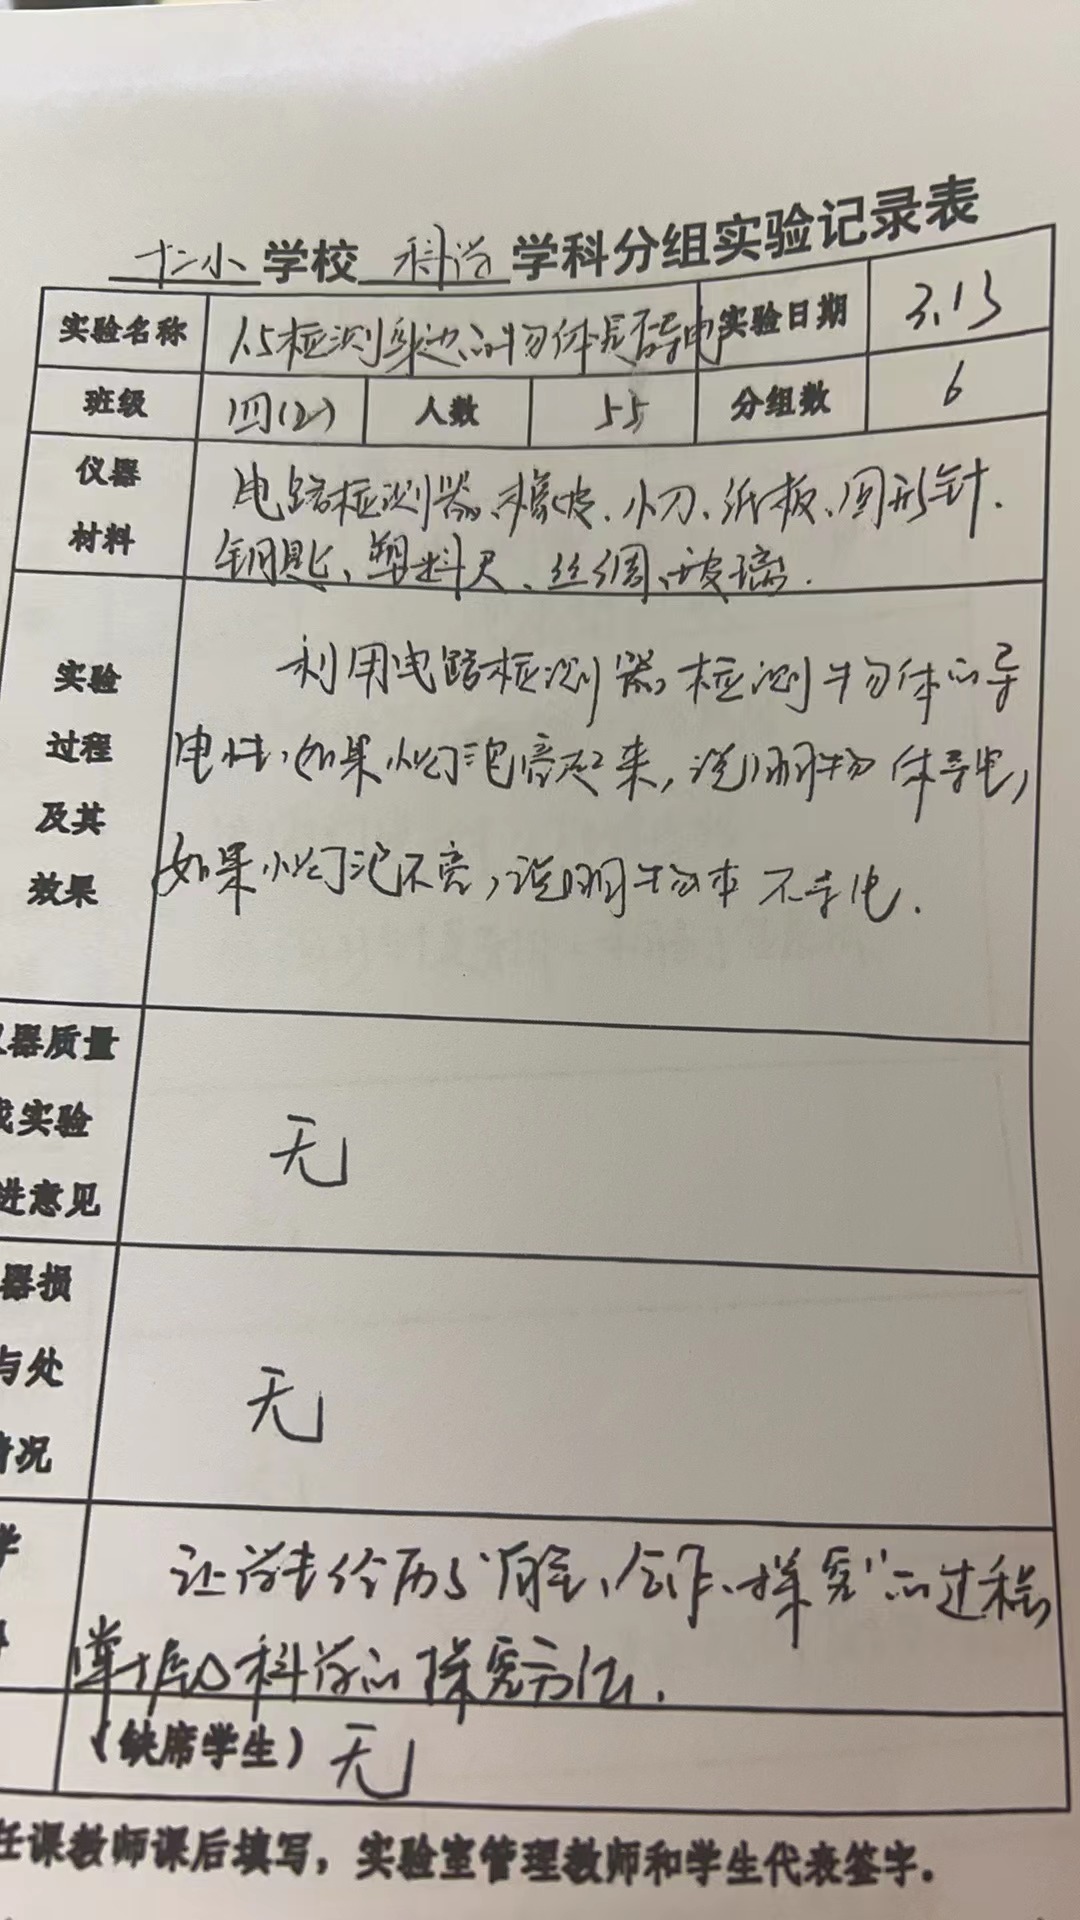 十二小学校 科学 学科分组实验记录表
实验名称 1.5检测身边的物体是否导电 实验日期 3.13
班级 四(2) 人数 55 分组数 6
仪器 电路检测器、橡皮、小刀、纸板、回形针、
材料 钥匙、塑料尺、丝绸、玻璃.
实验 利用电路检测器,检测物体的导
过程 电性,如果小灯泡亮起来,说明物体导电,
及其
效果 如果小灯泡不亮,说明物体不导电.
器质量
实验 无
进意见
器损
与处 无
情况
学 让学生经历了“自主、合作、探究”的过程,
掌握 科学的探究方法.
(缺席学生) 无
任课教师课后填写，实验室管理教师和学生代表签字。